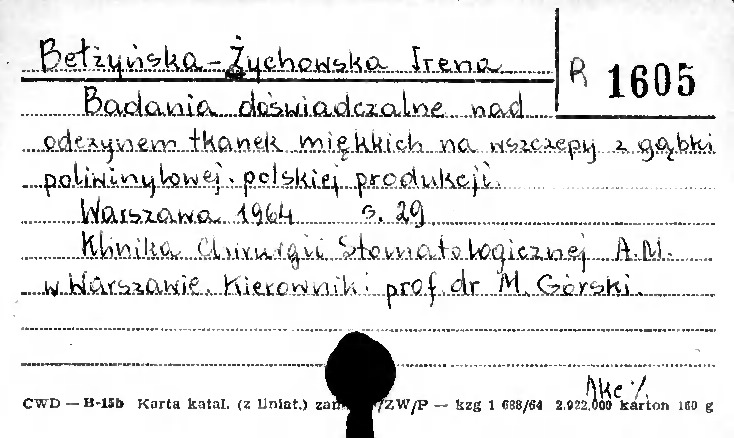 Bełżyńska-Żychowska Irena
R 1605
Badania doświadczalne nad
odczynem tkanek miękkich na wszczepy z gąbki
poliwinylowej polskiej produkcji.
Warszawa 1964 s. 29
Klinika Chirurgii Stomatologicznej A.M.
w Warszawie. Kierownik: prof. dr M. Górski.
Akc
CWD — H-15b Karta katal. (z liniat.) /ZW/P — kzg 1 688/64 2.922.000 karton 160 g